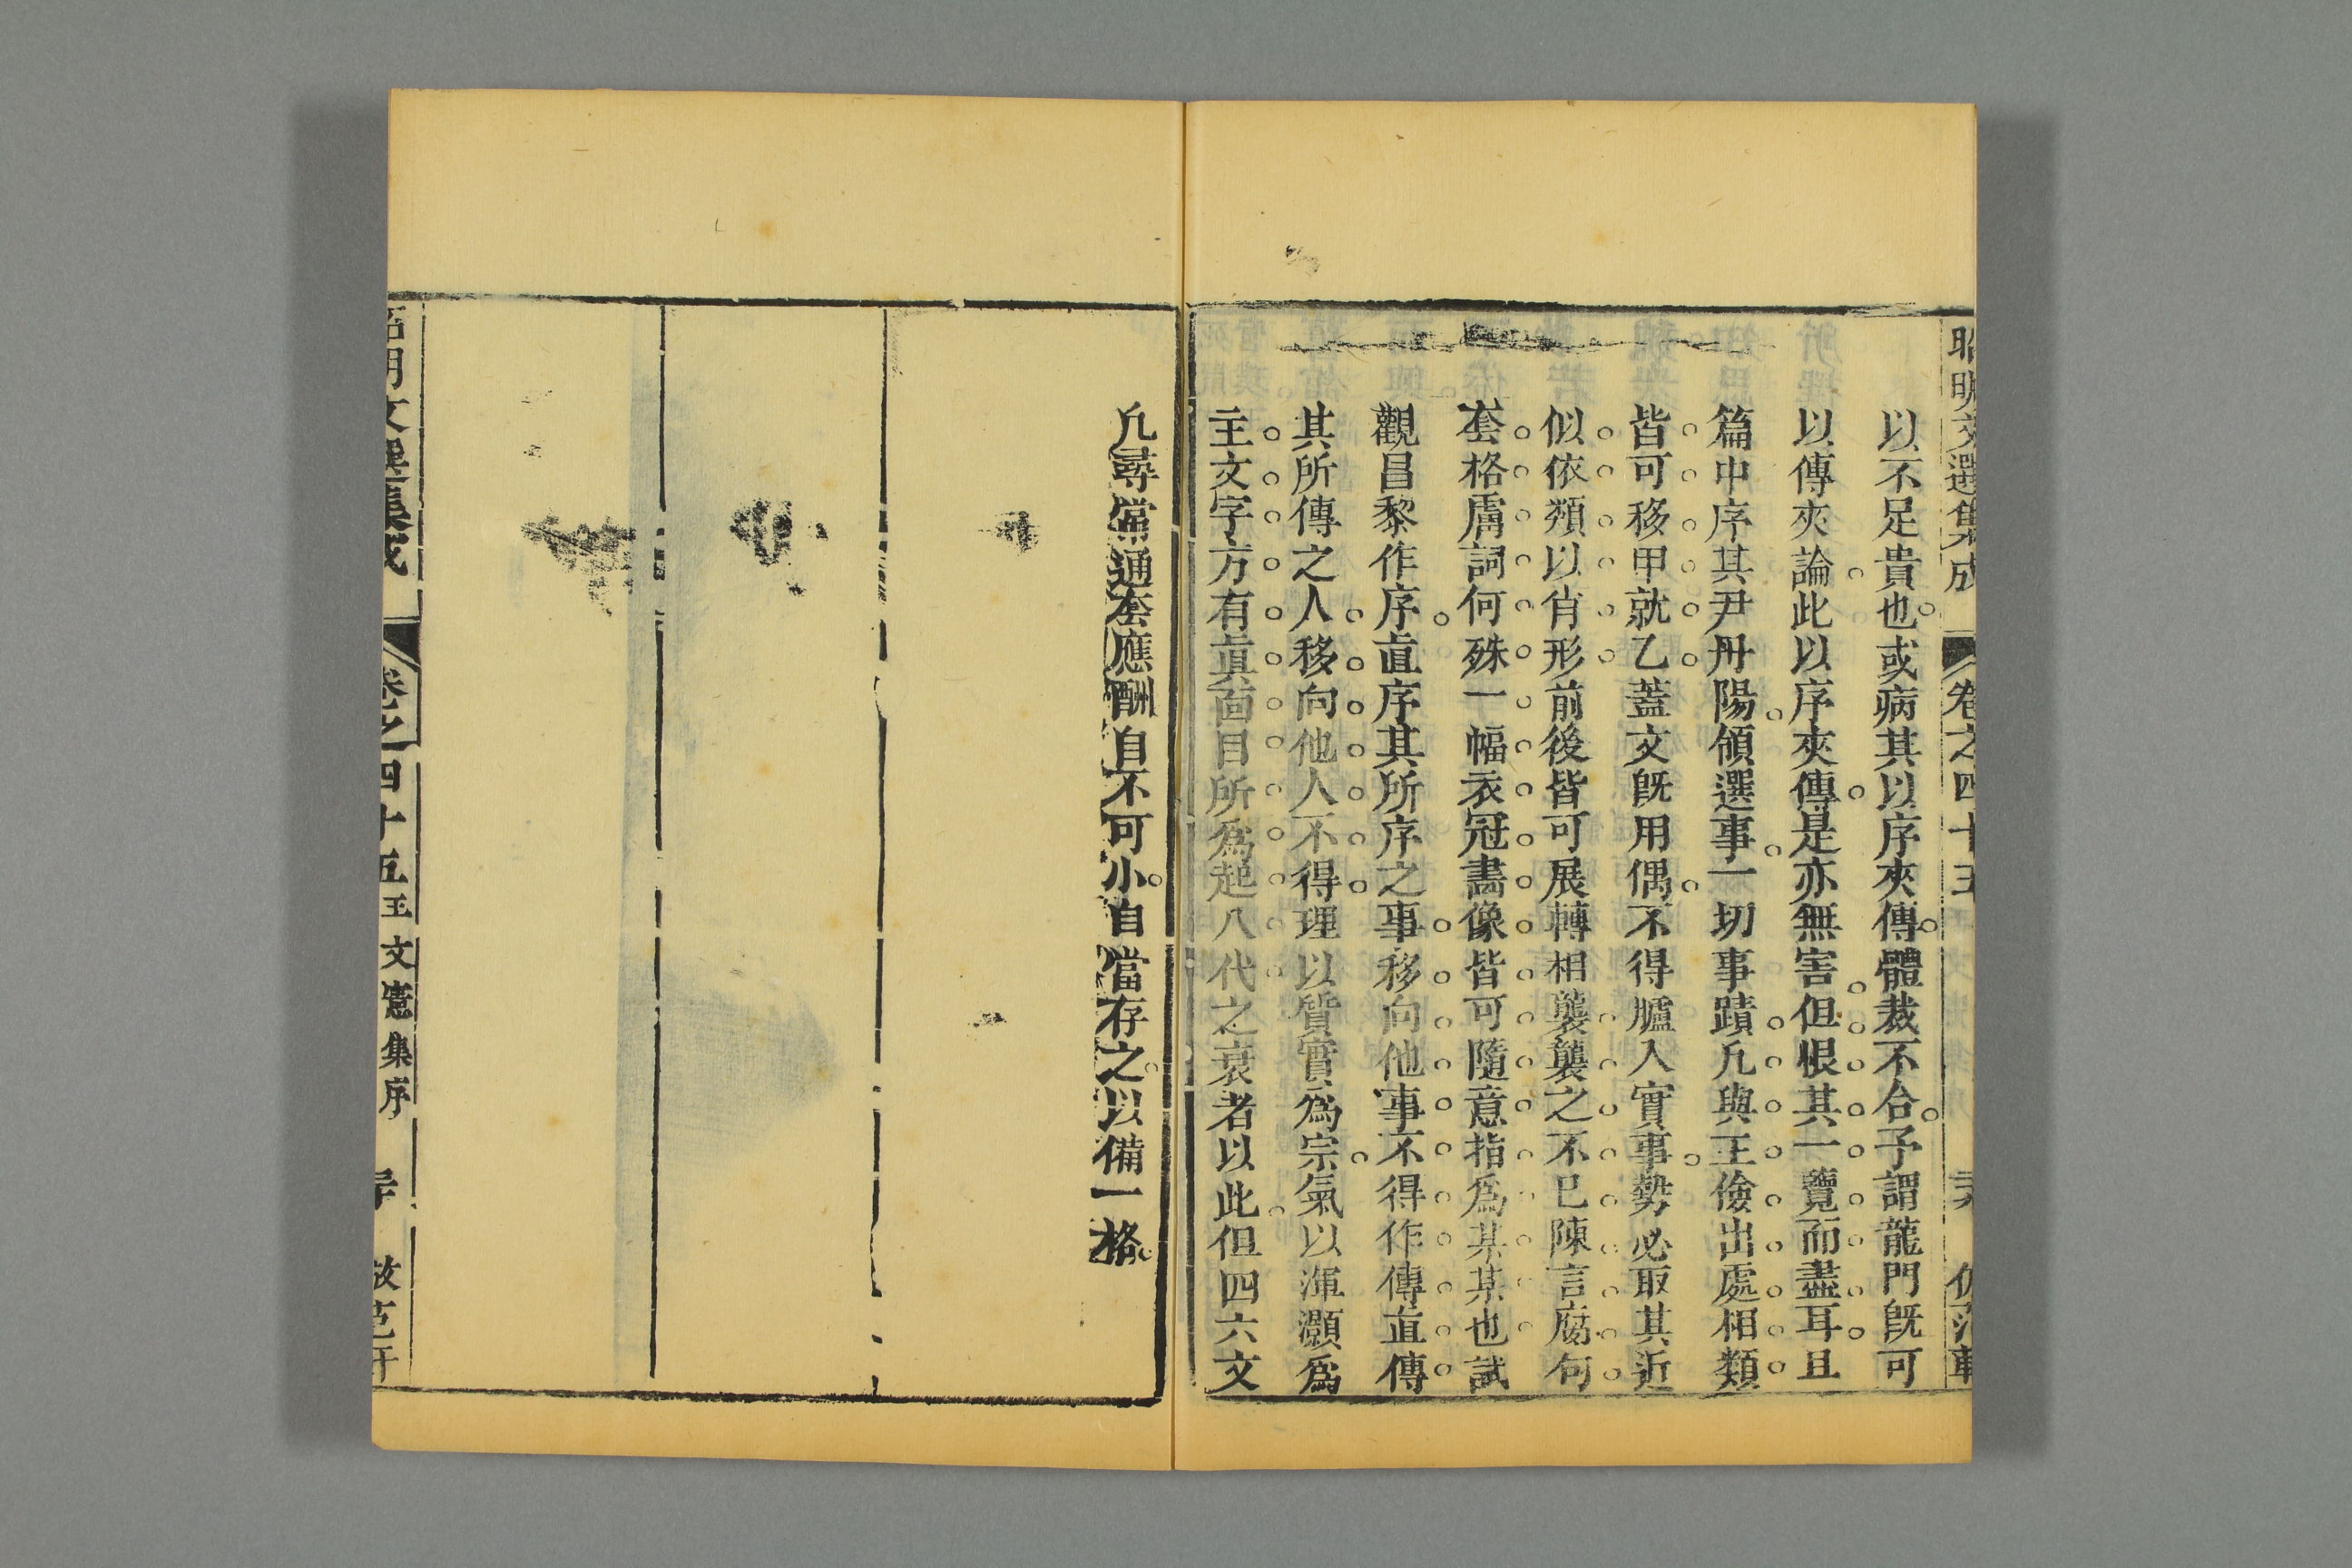 昭明文選集成 卷之四十五
以不足貴也或病其以序夾傳體裁不合予謂龍門旣可
以傳夾論此以序夾傳是亦無害但恨其一覽而盡耳且
篇中序其尹丹陽領選事一切事蹟凡與王儉出處相類
皆可移甲就乙蓋文旣用偶不得臚入實事勢必取其近
似依類以肖形前後皆可展轉相襲襲之不已陳言腐句
套格膚詞何殊一幅衣冠畵像皆可隨意指爲某某也試
觀昌黎作序直序其所序之事移向他事不得作傳直傳
其所傳之人移向他人不得理以質實爲宗氣以渾灝爲
主文字方有眞面目所爲起八代之衰者以此但四六文
凡尋常通套應酬自不可少自當存之以備一格
昭明文選集成 卷之四十五 王文憲集序